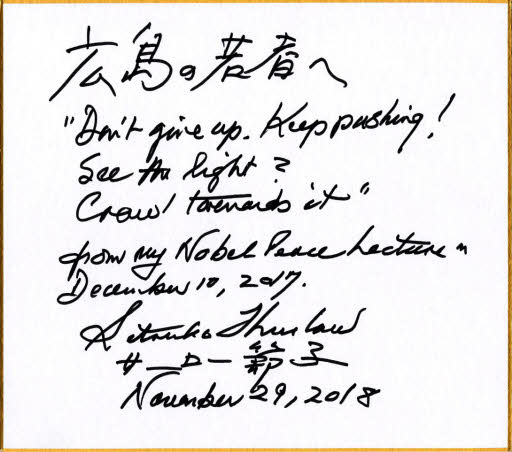 広島の若者へ
"Don't give up. Keep pushing!
See the light?
Crawl towards it"
from my Nobel Peace Lecture"
December 10, 2017.
Setsuko Thurlow
サーロー節子
November 29, 2018